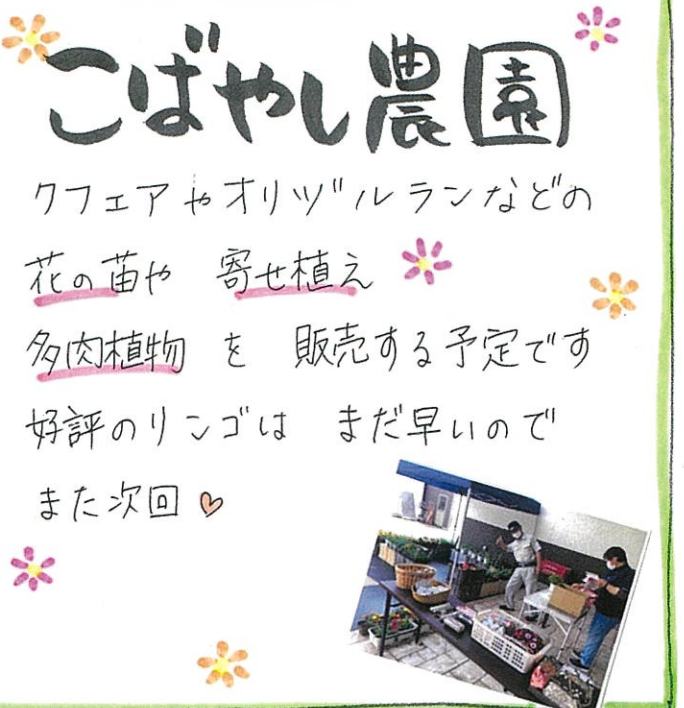 こばやし農園
クフェアやオリヅルランなどの
花の苗や 寄せ植え
多肉植物 を 販売する予定です
好評のリンゴは まだ早いので
また次回